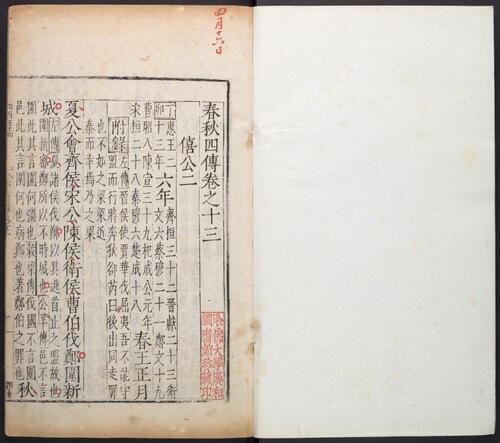 四月十六日
春秋四傳卷之十三
僖公二
丁卯惠王二十三年六年齊桓三十二晉獻二十三衛
文六蔡穆二十一鄭文十九
曹昭八陳宣三十九杞成公元年
宋桓二十八秦穆六楚成十八春王正月
附錄左傳晉侯使賈華伐屈夷吾不能守
盟而行將奔狄郤芮曰後出同走罪
也不如之梁梁近
秦而幸焉乃之梁
夏公會齊侯宋公陳侯衛侯曹伯伐鄭圍新
城左傳夏諸侯伐鄭以其逃首止之盟故也
圍新密鄭所以不時城也公羊傳邑不言
圍此其言圍何彊也穀梁傳伐國不言圍
邑此其言圍何也病鄭也著鄭伯之罪也秋
哈佛大學漢和
圖書館珍藏印